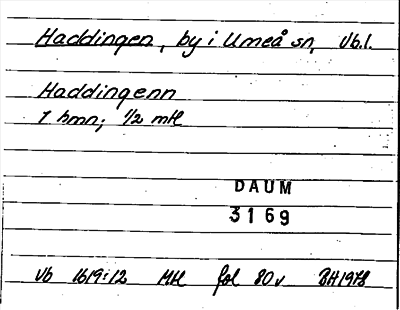 Haddingen, by i Umeå sn, Vb.l.
Haddingenn
1 hmn; 1/2 mtl
DAUM
3169
Vb 1619:12 Mtl fol 80 v BH1978